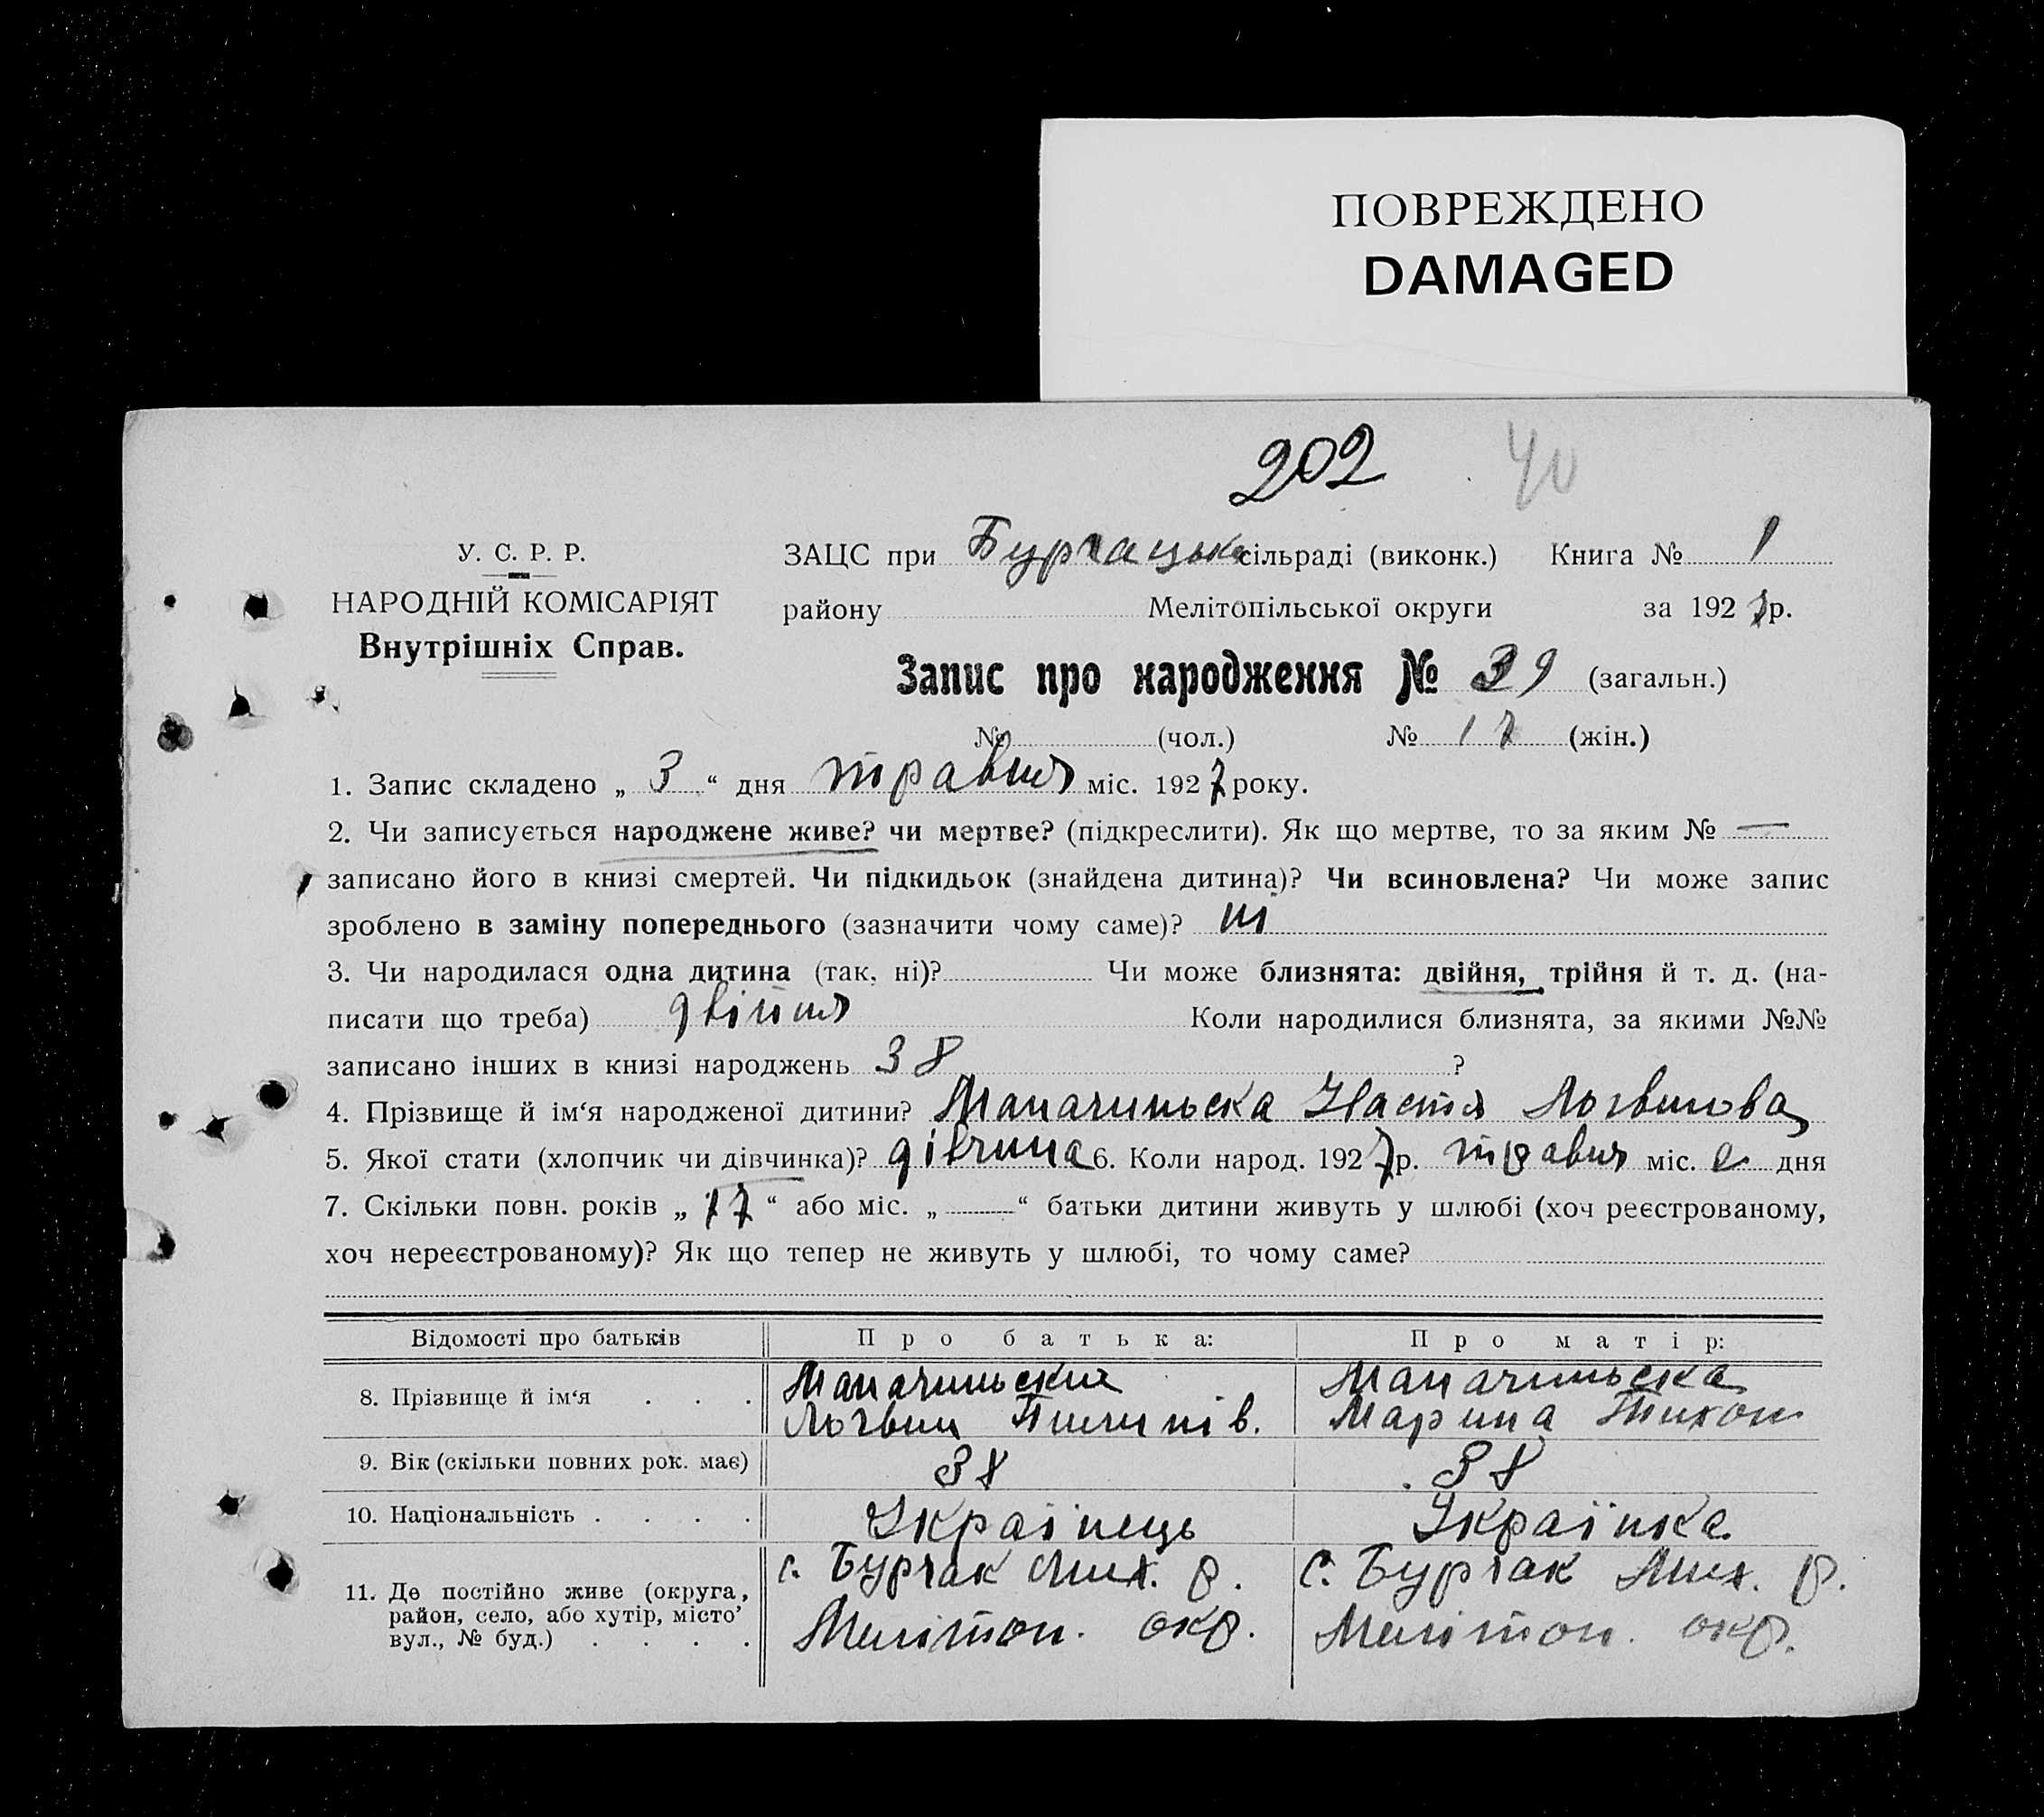 ПОВРЕЖДЕНО
DAMAGED
202 40
У. С. Р. Р.
НАРОДНІЙ КОМІСАРІЯТ
Внутрішніх Справ.
ЗАЦС при Бурчацьк сільраді (виконк.) Книга № 1
району Мелітопільської округи за 1927 р.
Запис про народження № 39 (загальн.)
№ (чол.) № 17 (жін.)
1. Запис складено „ 3 “ дня травня міс. 1927 року.
2. Чи записується народжене живе? чи мертве? (підкреслити). Як що мертве, то за яким № —
записано його в книзі смертей. Чи підкидьок (знайдена дитина)? Чи всиновлена? Чи може запис
зроблено в заміну попереднього (зазначити чому саме)? ні
3. Чи народилася одна дитина (так, ні)? Чи може близнята: двійня, трійня й т. д. (на-
писати що треба) двійня Коли народилися близнята, за якими №№
записано інших в книзі народжень 38 ?
4. Прізвище й ім‘я народженої дитини? Мапачиньска Настя Логвинова
5. Якої стати (хлопчик чи дівчинка)? дівчина 6. Коли народ. 1927 р. травня міс. 2 дня
7. Скільки повн. років „ 17 “ або міс. „ — “ батьки дитини живуть у шлюбі (хоч реєстрованому,
хоч нереєстрованому)? Як що тепер не живуть у шлюбі, то чому саме?
Відомості про батьків Про батька: Про матір:
8. Прізвище й ім‘я . . . Мапачиньский Мапачиньска
Логвин Пилипів. Марина Тихон
9. Вік (скільки повних рок. має) 38 38
10. Національність . . . . Українець Українка
11. Де постійно живе (округа, район, село, або хутір, місто’ вул., № буд.) . . . . с. Бурчак Мих. р. с. Бурчак Мих. р.
Мелітоп. окр. Мелітоп. окр.